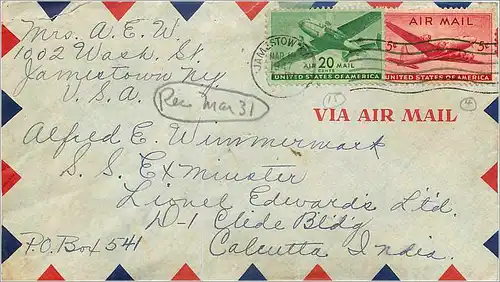 Mrs. A. E. W.
1902 Wash. St.
Jamestown N.Y.
U.S.A.
JAMESTOW
MAR
AIR 20 MAIL
CENTS
UNITED STATES OF AMERICA
AIR MAIL
5¢ 5¢
UNITED STATES OF AMERICA
Rec. Mar 31
VIA AIR MAIL
Alfred E. Wimmermark
S. S. Exminster
Lionel Edwards Ltd.
D-1 Clide Bldg
P.O. Box 541
Calcutta India.